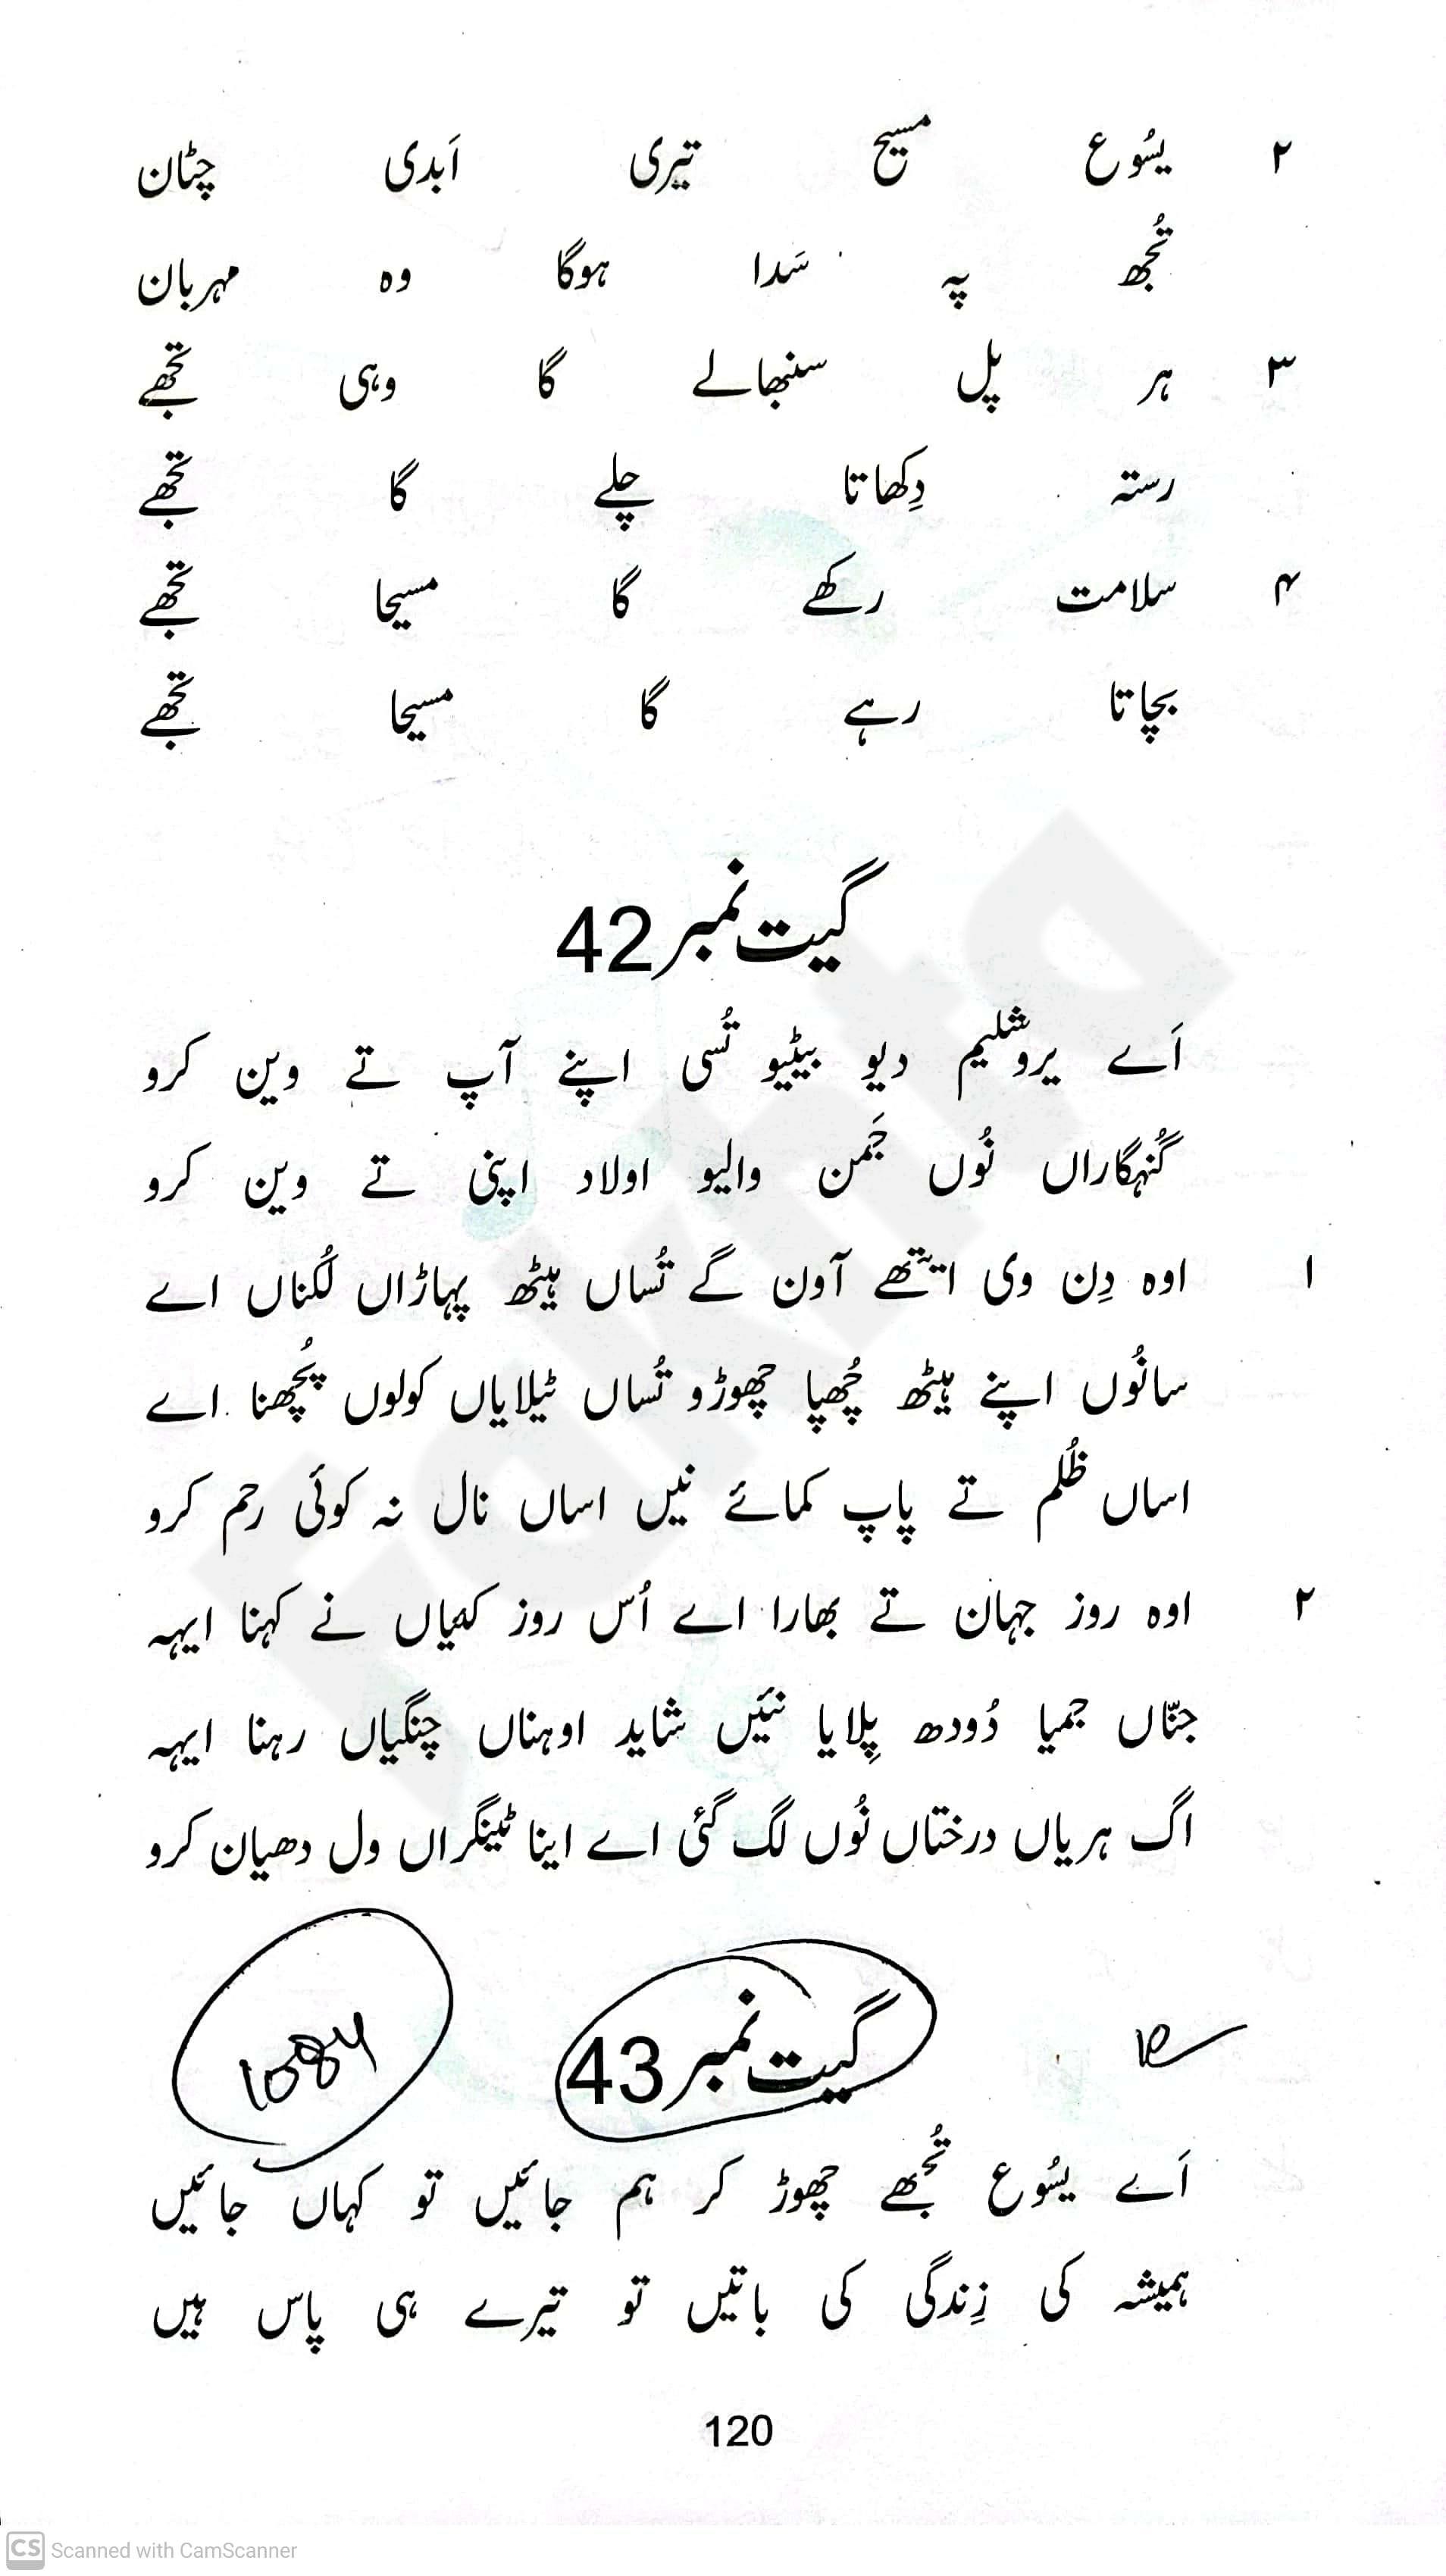 ۲ یسُوع مسیح تیری اَبدی چٹان
تُجھ پہ سَدا ہوگا وہ مہربان
۳ ہر پل سنبھالے گا وہی تجھے
رستہ دِکھاتا چلے گا تجھے
۴ سلامت رکھے گا مسیحا تجھے
بچاتا رہے گا مسیحا تجھے
گیت نمبر 42
اَے یروشلیم دیو بیٹیو تُسی اپنے آپ تے وین کرو
گُنہگاراں نُوں جَمن والیو اولاد اپنی تے وین کرو
۱ اوہ دِن وی ایتھے آون گے تُساں ہیٹھ پہاڑاں لُکناں اے
سانُوں اپنے ہیٹھ چُھپا چھوڑو تُساں ٹیلایاں کولوں پُچھنا اے
اساں ظُلم تے پاپ کمائے نیں اساں نال نہ کوئی رحم کرو
۲ اوہ روز جہان تے بھارا اے اُس روز کئیاں نے کہنا ایہہ
جنّاں جمیا دُودھ پِلایا نئیں شاید اوہناں چنگیاں رہنا ایہہ
اگ ہریاں درختاں نُوں لگ گئی اے اینا ٹینگراں ول دھیان کرو
1084
گیت نمبر 43
اَے یسُوع تُجھے چھوڑ کر ہم جائیں تو کہاں جائیں
ہمیشہ کی زِندگی کی باتیں تو تیرے ہی پاس ہیں
120
Fakhta
CS Scanned with CamScanner